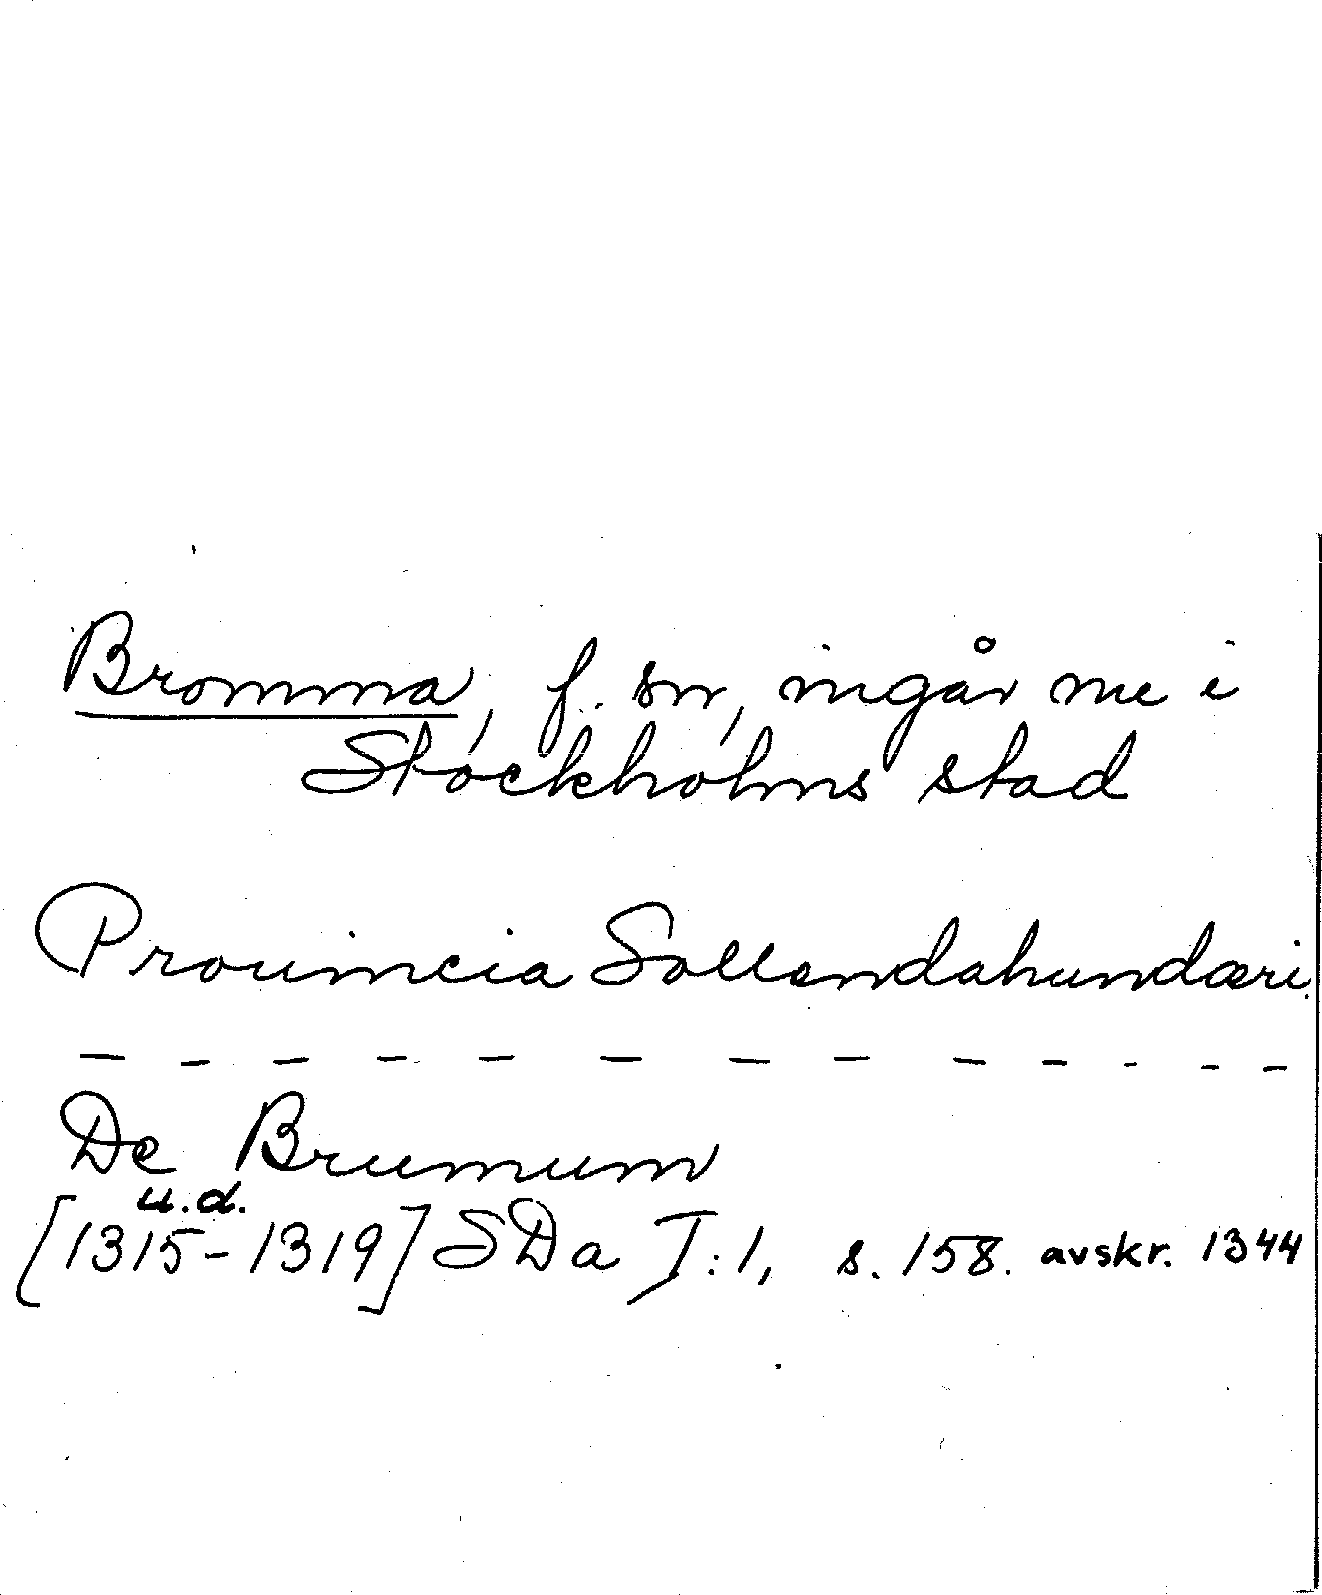 Bromma, f. sn, ingår nu i
Stockholms stad
Prouincia Sollendahundæri.
- - - - - - - - - - - - -
De Brumum
u.d.
[1315-1319] SDa I:1, s. 158. avskr. 1344